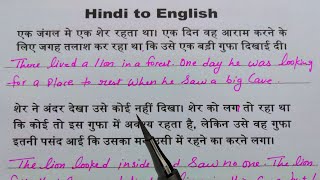 Hindi to English
एक जंगल मे एक शेर रहता था। एक दिन वह आराम करने
के लिए जगह तलाश कर रहा था कि उसे एक बड़ी गुफा दिखाई दी।
There lived a lion in a forest. One day he was looking
for a place to rest when he saw a big cave.
शेर ने अंदर देखा उसे कोई नहीं दिखा। शेर को लग तो रहा था
कि कोई तो इस गुफा में अवश्य रहता है, लेकिन उसे वह गुफा
इतनी पसंद आई कि उसका मन उसी में रहने का करने लगा।
The lion looked inside and saw no one. The lion